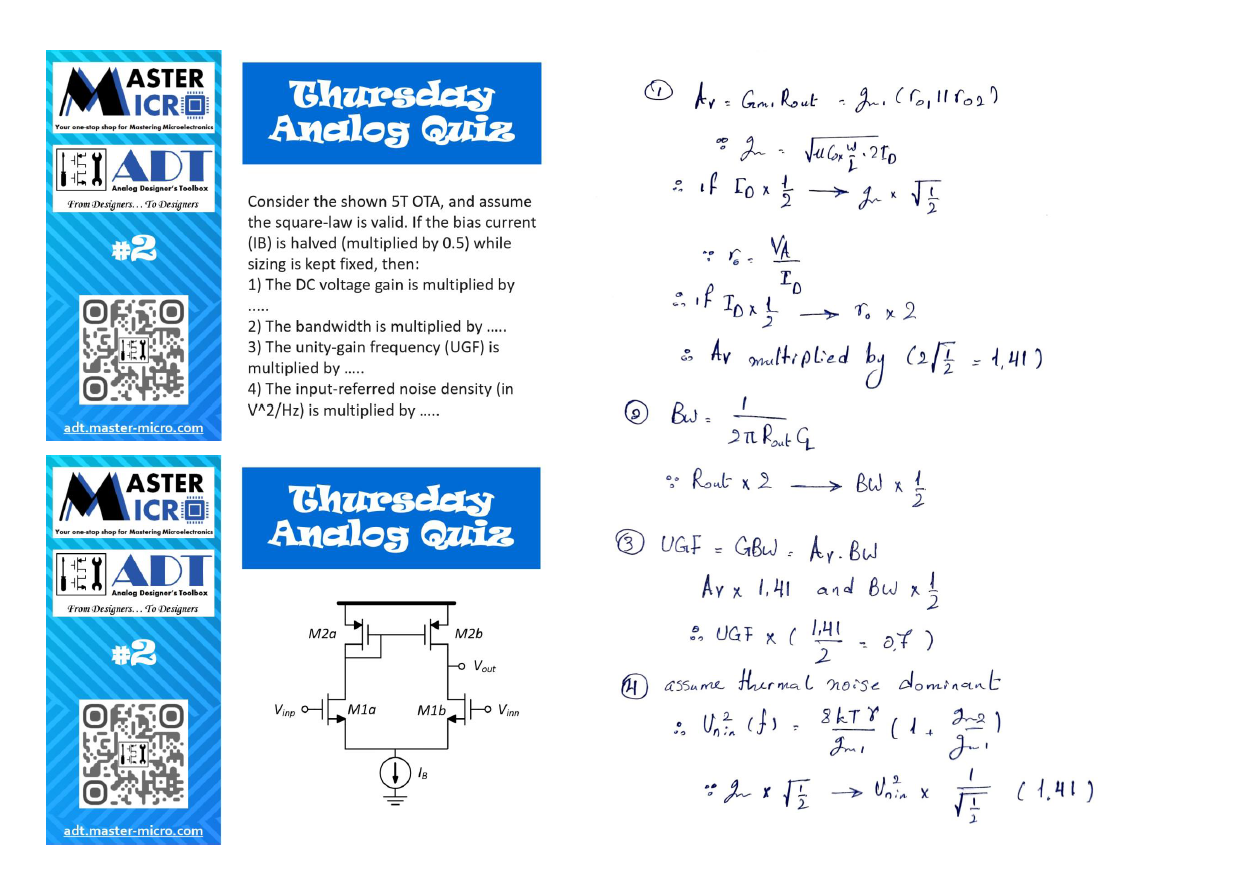 MASTER
MICRO
Your one-stop shop for Mastering Microelectronics
ADT
Analog Designer's Toolbox
From Designers... To Designers
#2
adt.master-micro.com
Thursday
Analog Quiz
Consider the shown 5T OTA, and assume
the square-law is valid. If the bias current
(IB) is halved (multiplied by 0.5) while
sizing is kept fixed, then:
1) The DC voltage gain is multiplied by
.....
2) The bandwidth is multiplied by .....
3) The unity-gain frequency (UGF) is
multiplied by .....
4) The input-referred noise density (in
V^2/Hz) is multiplied by .....
MASTER
MICRO
Your one-stop shop for Mastering Microelectronics
ADT
Analog Designer's Toolbox
From Designers... To Designers
#2
adt.master-micro.com
Thursday
Analog Quiz
M2a M2b
Vout
Vinp M1a M1b Vinn
IB
① Av = Gm1 Rout = gm1 (ro1 || ro2)
∵ gm = √(μCox W/L · 2ID)
∴ if ID × 1/2 → gm × √(1/2)
∵ ro = VA/ID
∴ if ID × 1/2 → ro × 2
∴ Av multiplied by (2√(1/2) = 1,41)
② BW = 1/(2π Rout CL)
∵ Rout × 2 → BW × 1/2
③ UGF = GBW = Av . BW
Av × 1,41 and BW × 1/2
∴ UGF × (1,41/2 = 0,7)
④ assume thermal noise dominant
∴ Vnin² (f) = 8kTγ/gm1 (1 + gm2/gm1)
∵ gm × √(1/2) → Vnin² × 1/√(1/2) (1,41)